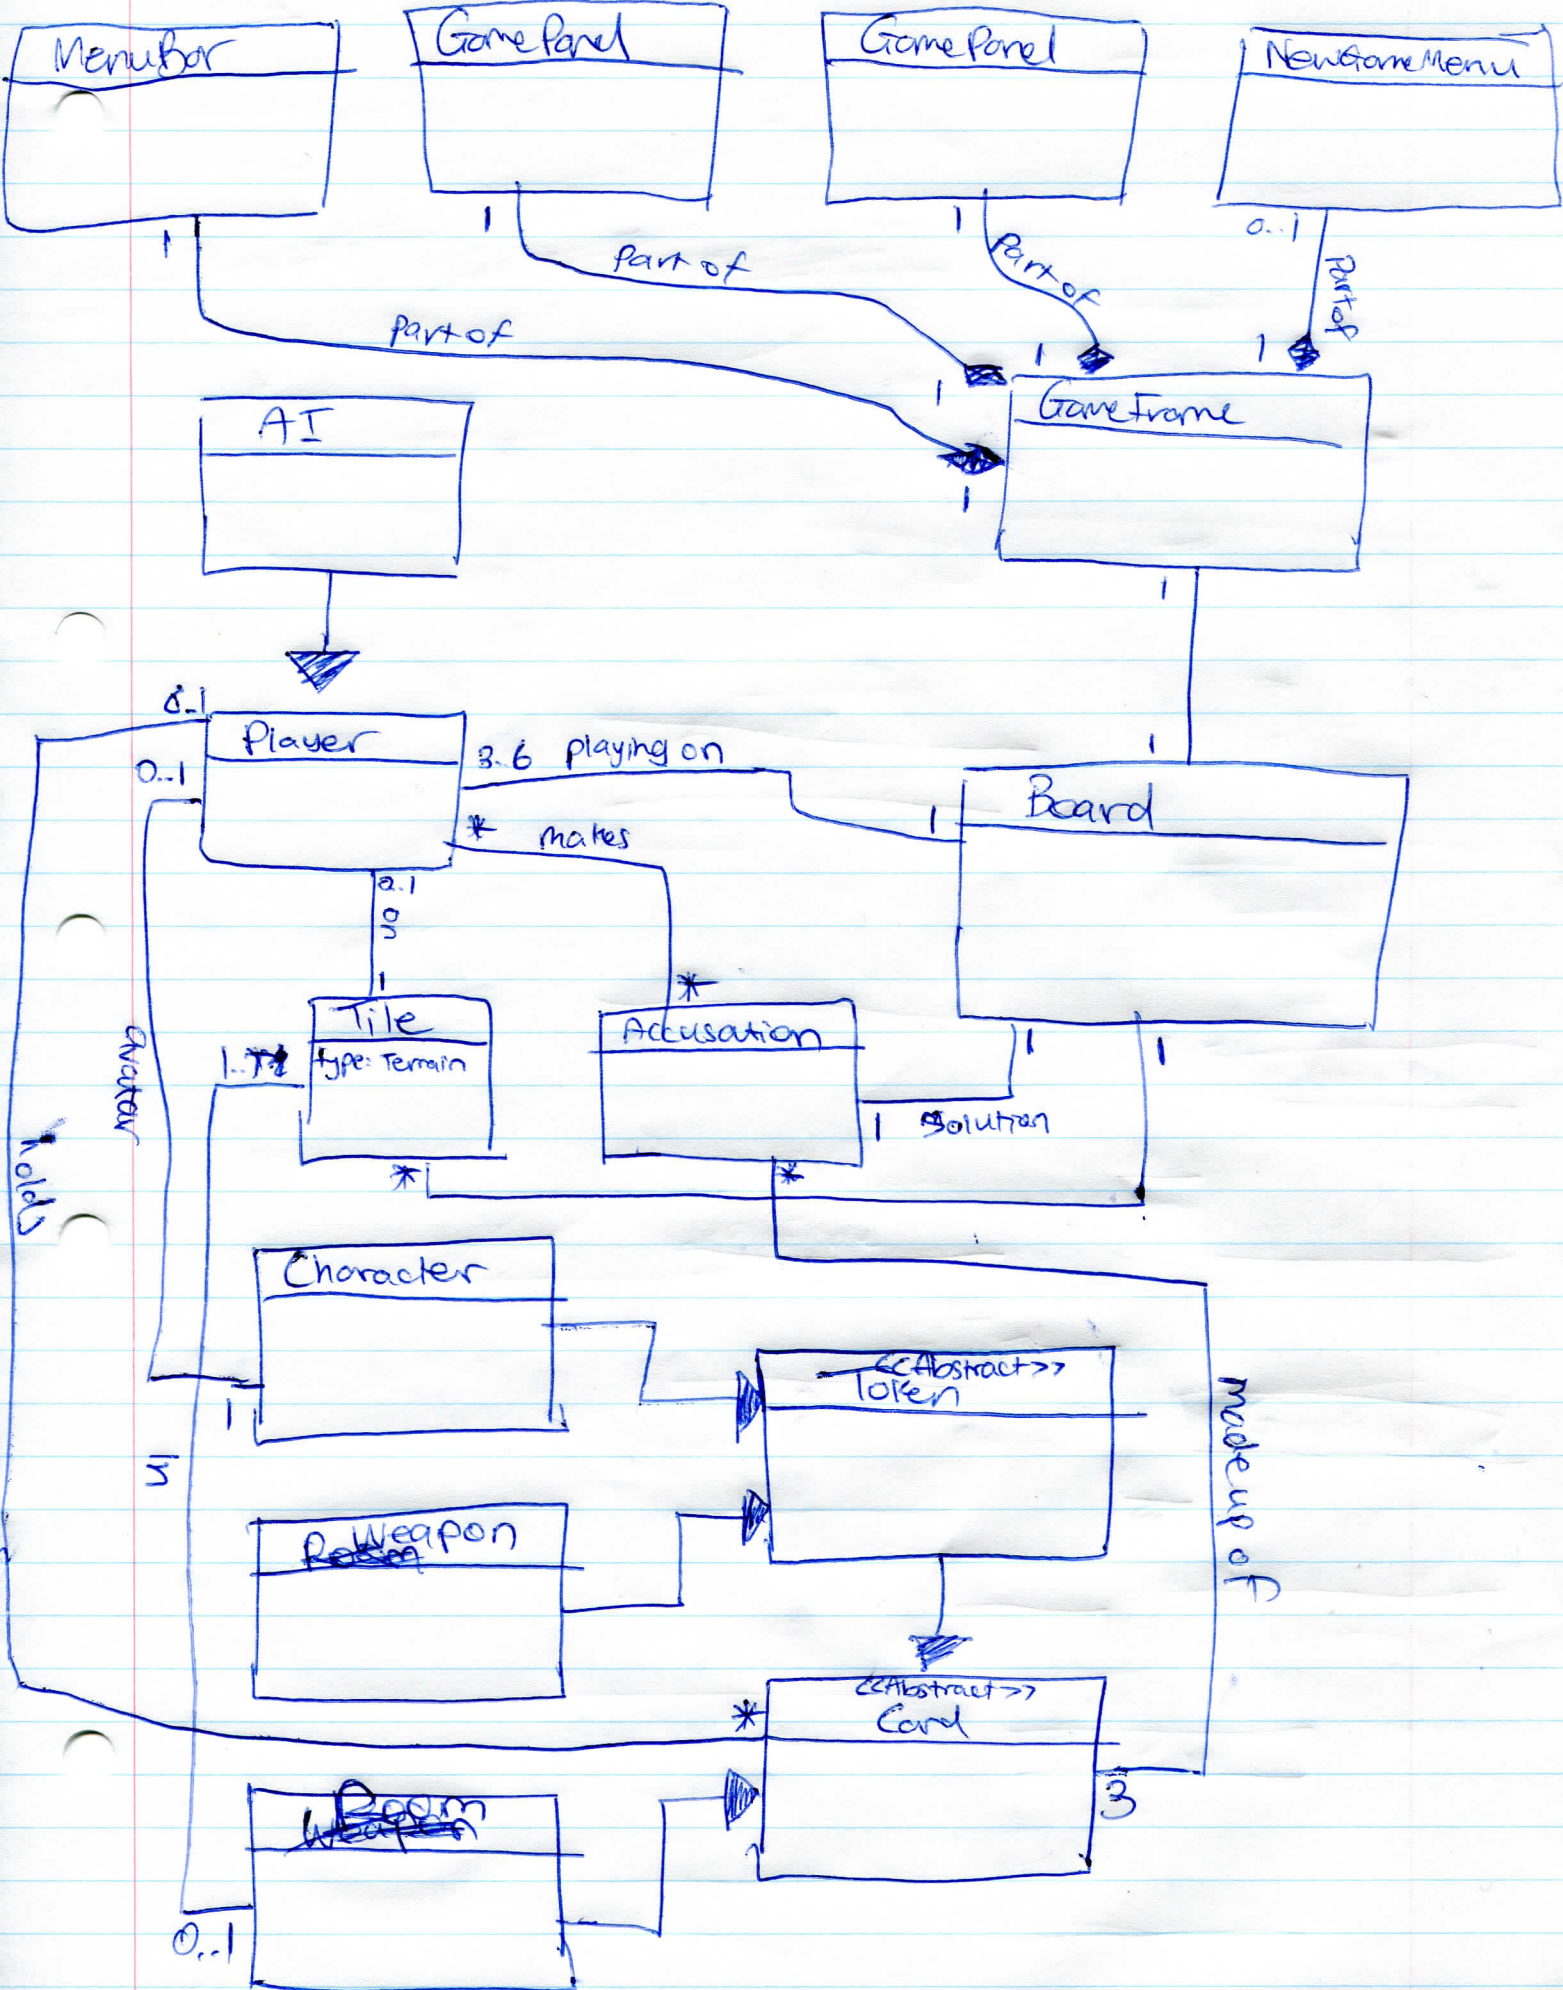 MenuBar
GamePanel
GamePanel
NewGameMenu
1
1
1
0..1
Part of
Part of
Part of
Part of
1
1
1
1
GameFrame
AI
1
0..1
Player
0..1
3..6 playing on
1
Board
1
* makes
0..1
on
1
*
Tile
type: Terrain
1..
Accusation
1
1
1 Solution
avatar
holds
*
*
Character
1
in
<<Abstract>>
Token
made up of
Weapon
<<Abstract>>
Card
*
3
Room
0..1